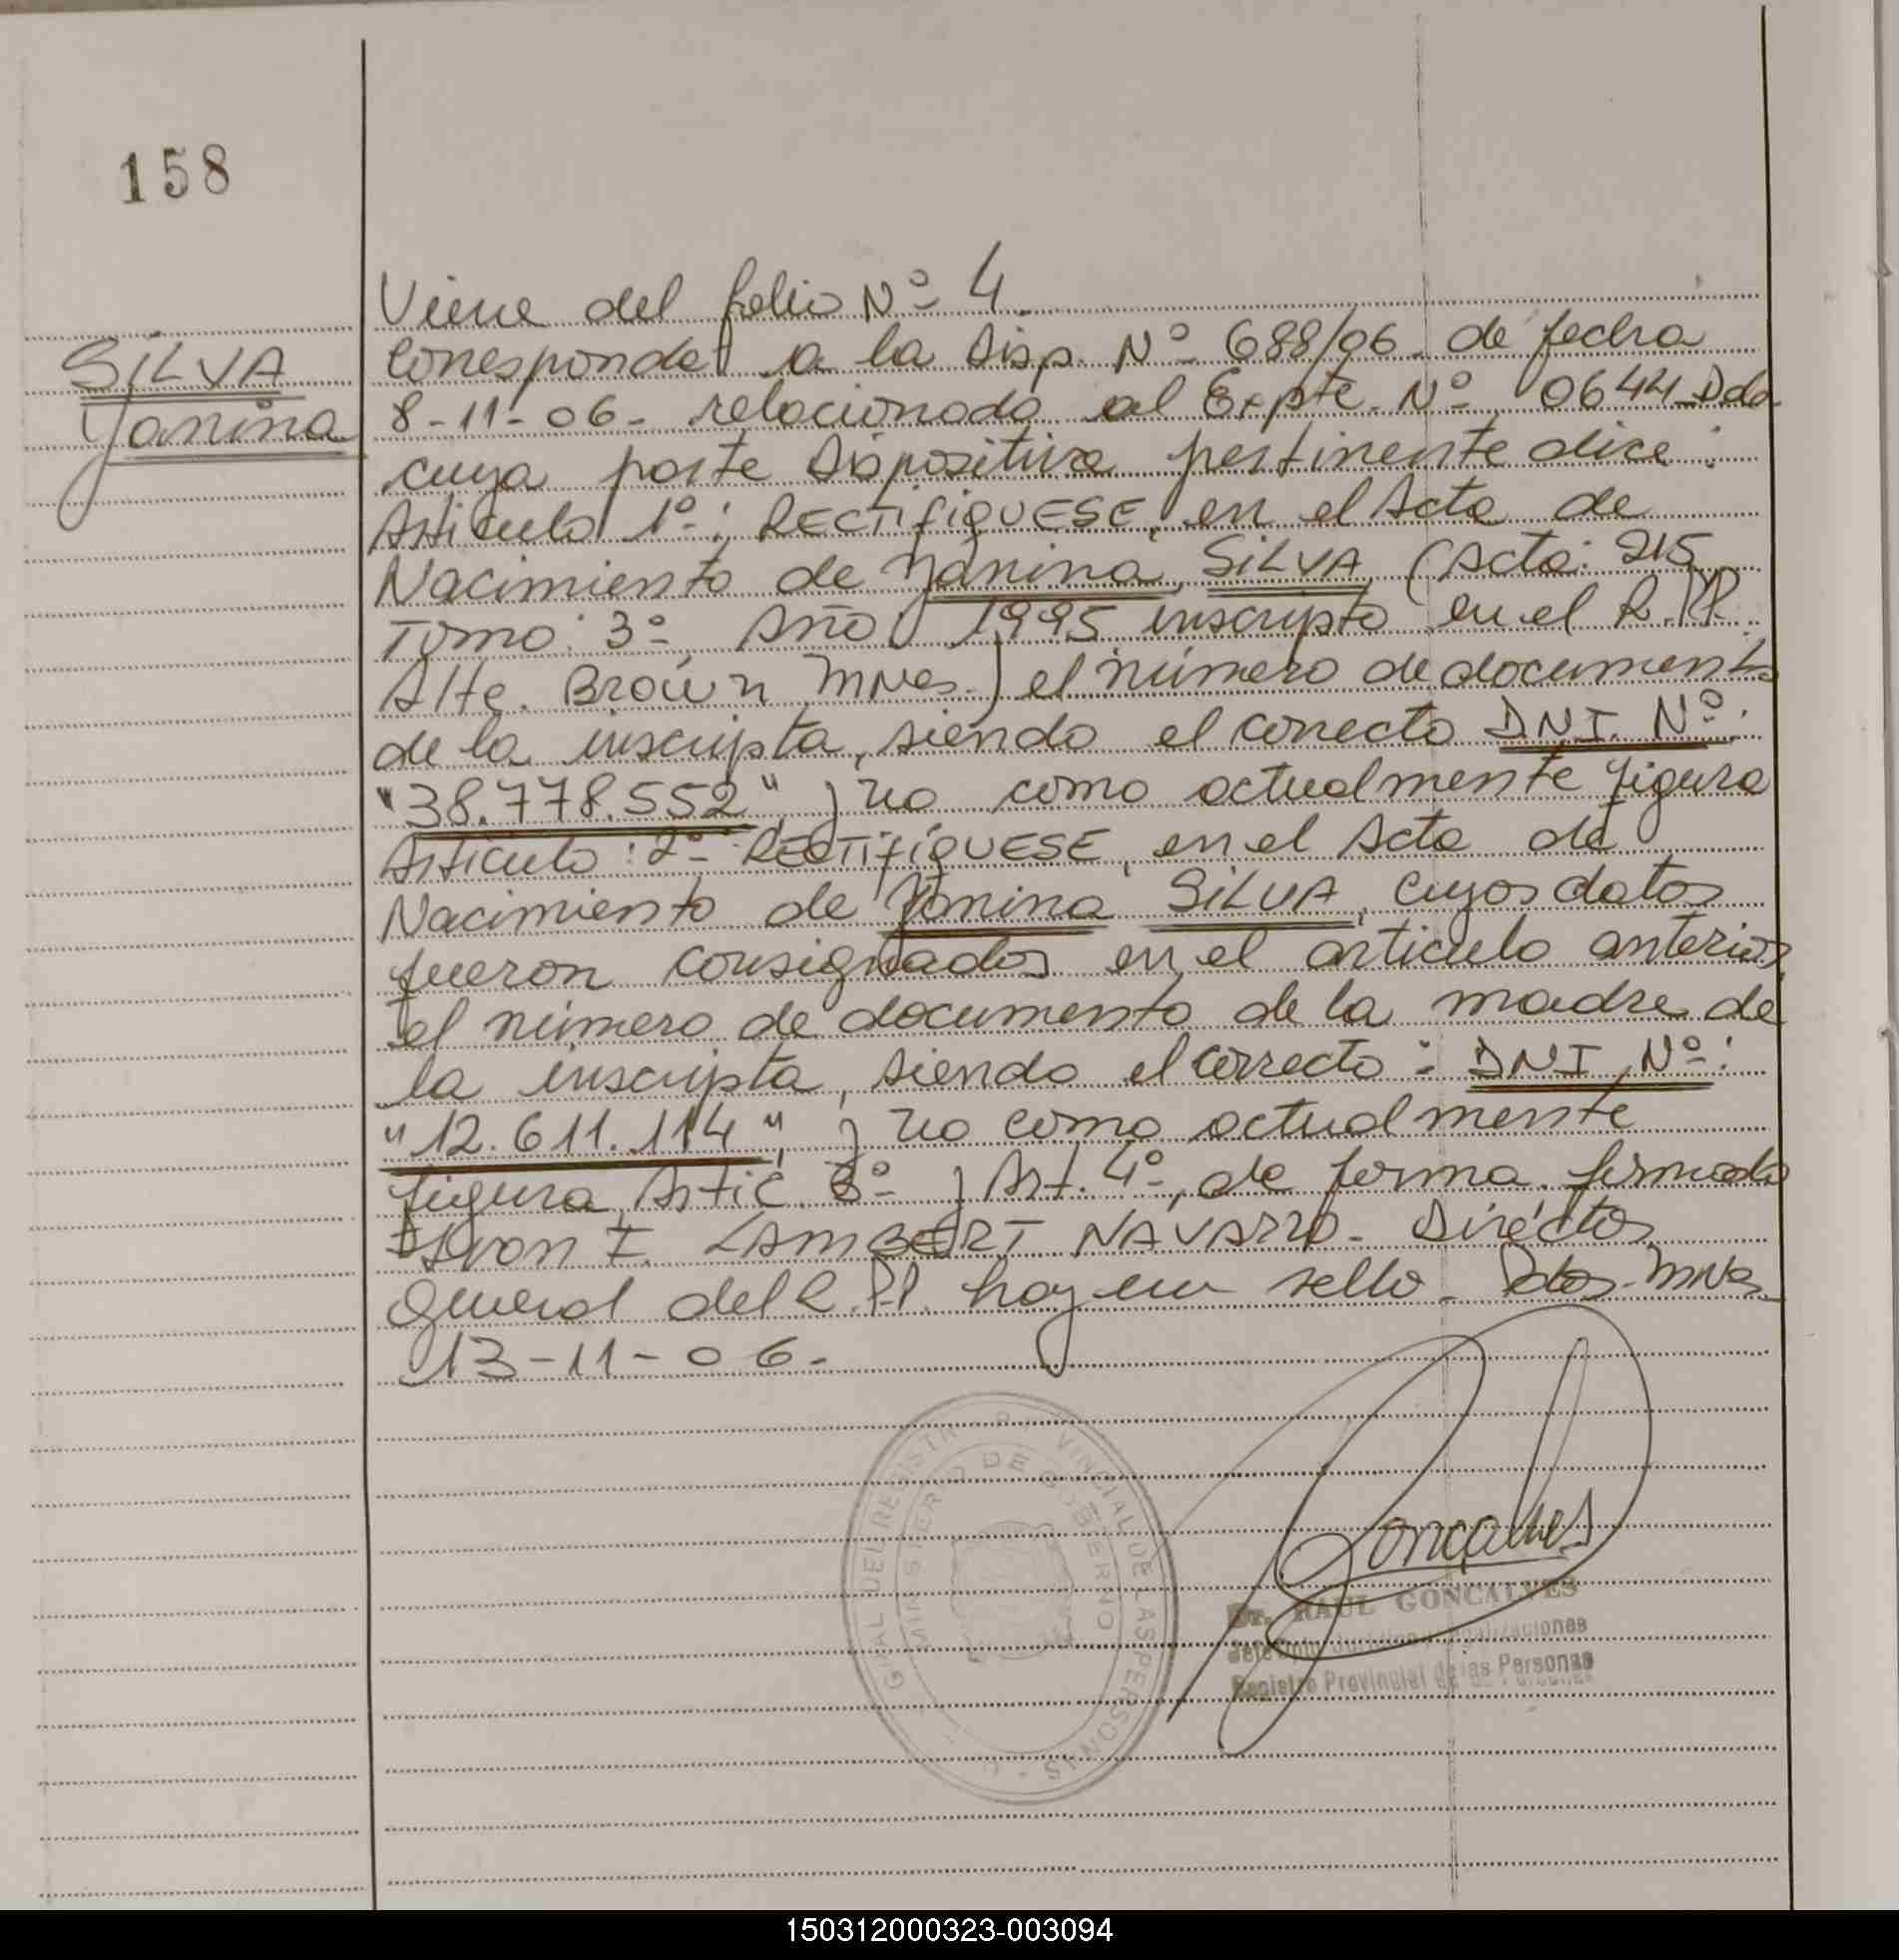 158
SILVA
Yanina
Viene del folio Nº 4
Corresponde a la Disp. Nº 688/06. de fecha
8-11-06- relacionada al Expte. Nº 0644-D
cuya parte Dispositiva pertinente dice:
Articulo 1º: RECTIFIQUESE, en el Acta de
Nacimiento de Yanina, SILVA (Acta: 215
Tomo: 3º Año 1995 inscripto en el R.P.P.
Alte. Brown Mnes.) el número de documento
de la inscripta, siendo el correcto DNI. Nº:
"38.778.552" y no como actualmente figura
Articulo: 2º RECTIFIQUESE, en el Acta de
Nacimiento de Yanina SILVA, cuyos datos
fueron consignados en el articulo anterior,
el número de documento de la madre de
la inscripta, siendo el correcto: DNI Nº:
"12.611.114", y no como actualmente
figura. Artic. 3º y Art. 4º, de forma. firmado
Ivon I. LAMBERT NAVARRO- Director
General del R.P.P. hay un sello- Pdas-Mnes-
13-11-06-
GRAL DEL REGISTRO PROVINCIAL DE LAS PERSONAS
MINISTERIO DE GOBIERNO
Goncalves
Dr. RAUL GONCALVES
Registro Provincial de las Personas
150312000323-003094